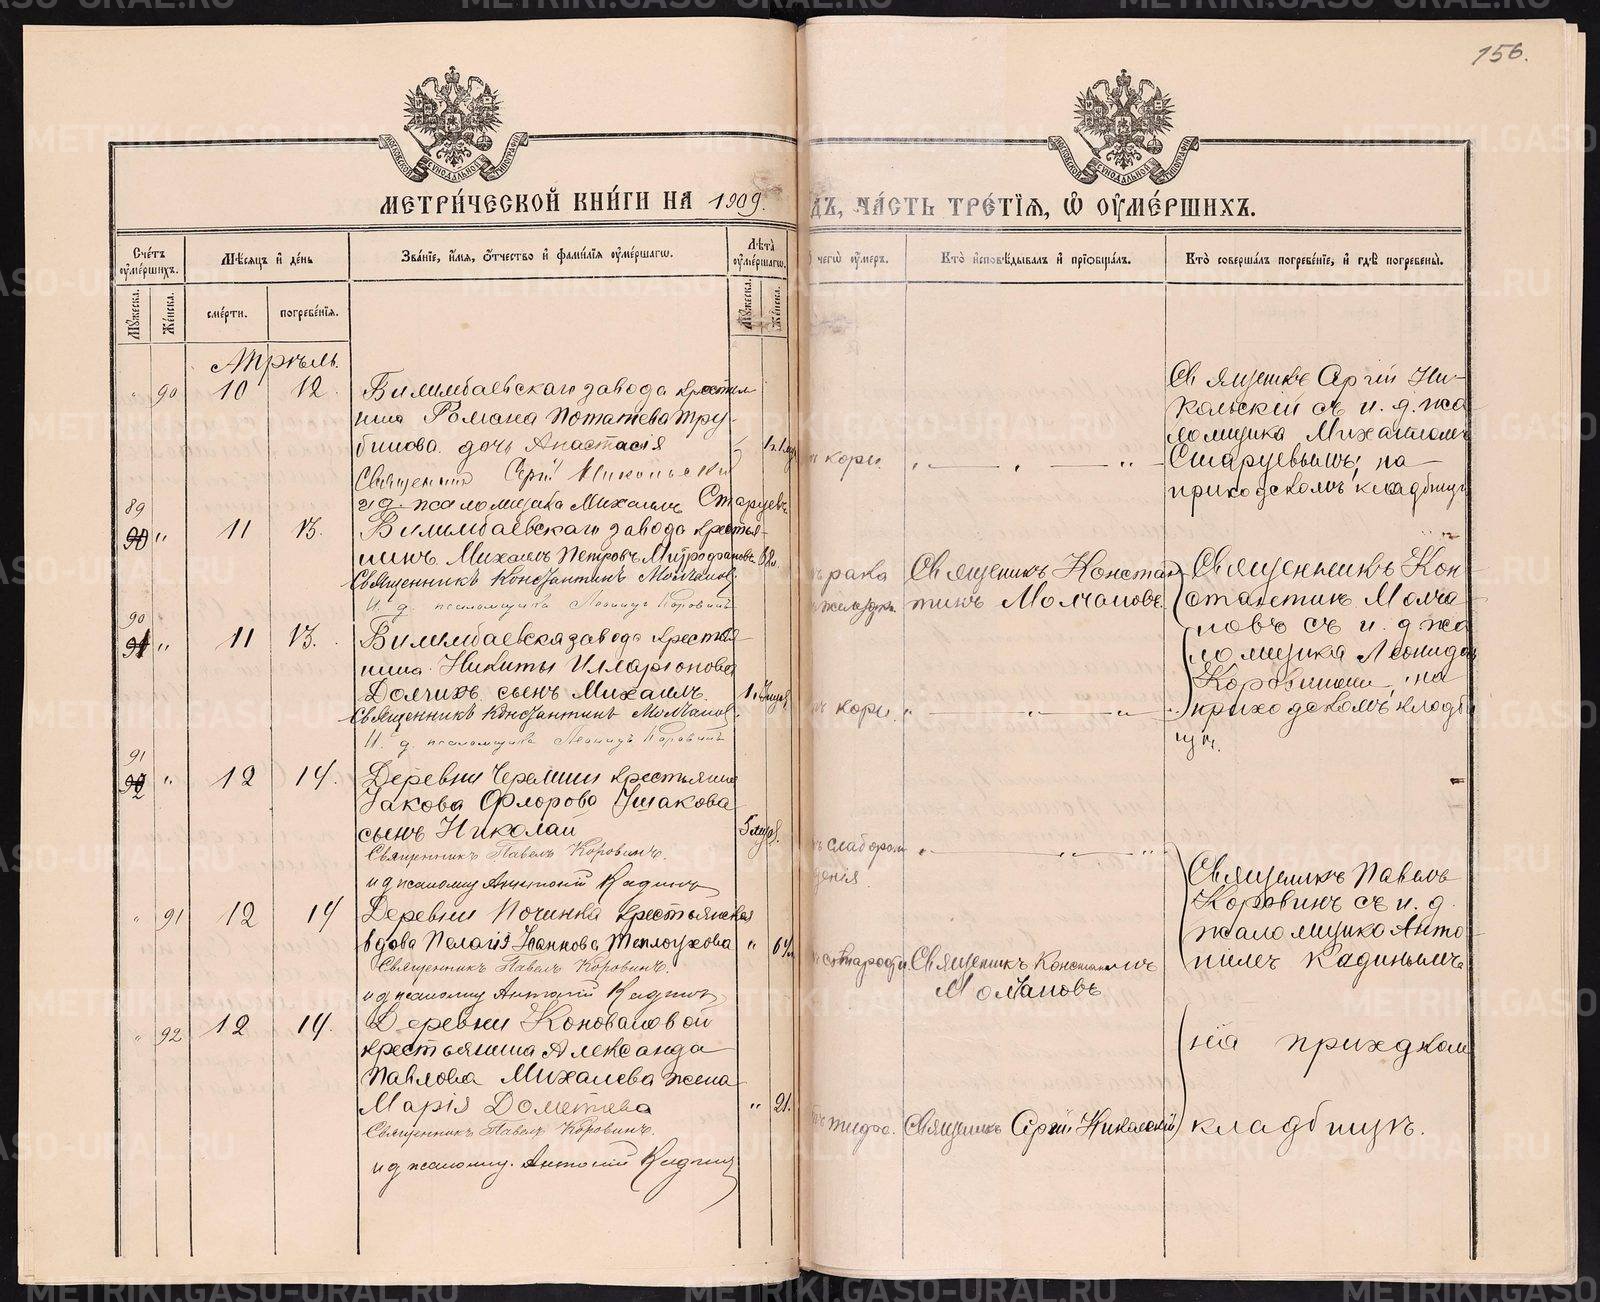 156.
МЕТРИ́ЧЕСКОЙ КНИ́ГИ НА 1909.
ДЪ, ЧА́СТЬ ТРЕ́ТІЯ, Ѿ ОУМЕ́РШИХЪ.
Сче́тъ оуме́ршихъ.
Мѣ́сяцъ и де́нь
Зва́ніе, и́мя, о́тчество и фами́лія оуме́ршагѡ.
Лѣ́та оуме́ршагѡ.
чегѡ̀ оу́меръ.
Кто̀ исповѣ́дывалъ и пріобща́лъ.
Кто̀ соверша́лъ погребе́ніе, и гдѣ̀ погребены̀.
Му́жеска.
Же́нска.
сме́рти.
погребе́нія.
Му́жеска.
Же́нска.
Апрѣль.
90 10 12.
Билимбаевскаго завода крестья
нина Романа Потапева Тру-
бинова дочь Анастасія
Священник Сергій Никольскій
и д. псаломщика Михаилъ Старцевъ
кори.
Священникъ Сергій Ни-
кольскій съ и. д. пса
ломщика Михаиломъ
Старцевымъ, на
приходскомъ кладбищѣ
89
90 11 13.
Билимбаевскаго завода кресть-
янинъ Михаилъ Петровъ Митрофановъ
Священникъ Константинъ Молчановъ.
И. д. псаломщика Леонидъ Коровинъ
рака
желудк.
Священникъ Констан
тинъ Молчановъ.
Священникъ Кон-
стантинъ Молча-
новъ съ и. д. пса
ломщика Леонидомъ
Коровинымъ, на
приходскомъ кладби
щѣ.
90
91 11 13.
Билимбаевска завода крестья-
нина Никиты Илларіонова
Долгихъ сынъ Михаилъ
Священникъ Константинъ Молчановъ.
И. д. псаломщика Леонидъ Коровинъ
кори.
91
92 12 14.
Деревни Черемши крестьянина
Іакова Флорова Ушакова
сынъ Николай
5 мѣс.
Священникъ Павелъ Коровинъ.
и д псаломщ Антоній Кадинъ
слаборож
денія.
Священникъ Павелъ
Коровинъ съ и. д.
псаломщика Анто-
ніемъ Кадинымъ
91 12 14
Деревни Починка крестьянская
вдова Пелагія Іоаннова Теплоухова
Священникъ Павелъ Коровинъ.
и д псаломщ Антоній Кадинъ
старости
Священникъ Константинъ
Молчановъ
92 12 14.
Деревни Коноваловой
крестьянина Александа
Павлова Михалева жена
Марія Дометіева
21.
Священникъ Павелъ Коровинъ.
и д псаломщ. Антоній Кадинъ
тифа.
Священникъ Сергій Никольскій
на приходском
кладбищѣ.
METRIKI.GASO-URAL.RU